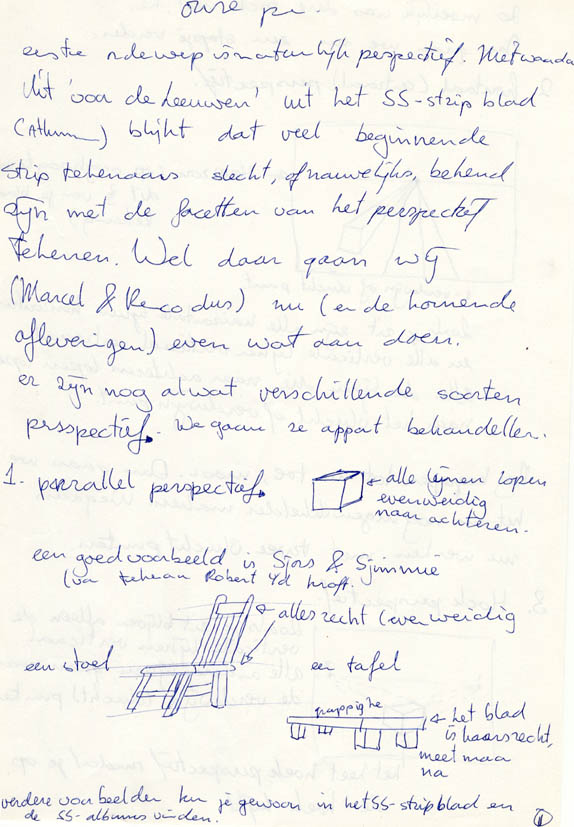 onze
eerste onderwerp is natuurlijk perspectief. Met
Uit 'voor de Leeuwen' uit het SS-strip blad
blijkt dat veel beginnende
strip tekenaars slecht, of nauwelijks, behend
zijn met de facetten van het perspectief
tekenen. Wel daar gaan wij
(Marcel & Renco dus) nu (en de komende
afleveringen) even wat aan doen.
er zijn nog al wat verschillende soorten
perspectief. We gaan ze appart behandellen.
1. parallel perspectief.
alle lijnen lopen
evenweidig
naar achteren.
een goed voorbeeld is Sjors & Sjimmie
(van tekenaar Robert v/d Kroft.
alles recht (evenweidig
een stoel
een tafel
grappighe
het blad
is kaarsrecht,
meet maar
na
verdere voorbeelden kun je gewoon in het SS-stripblad en
de SS-albums vinden.
1